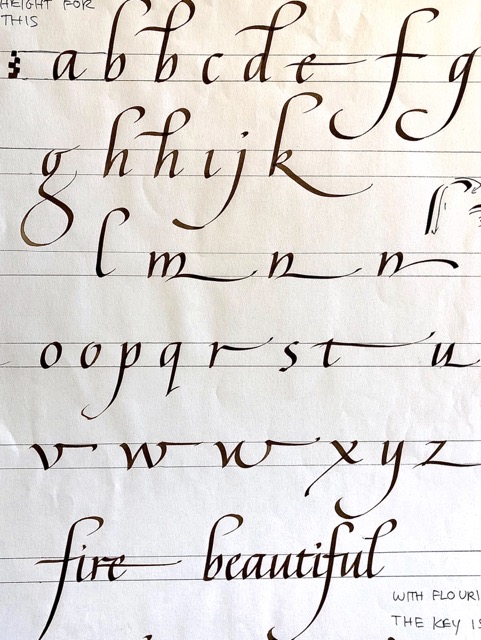 HEIGHT FOR
THIS
a b b c d e f g
g h h i j k
l m n n
o o p q r s t u
v w w x y z
fire beautiful
WITH FLOURI
THE KEY IS